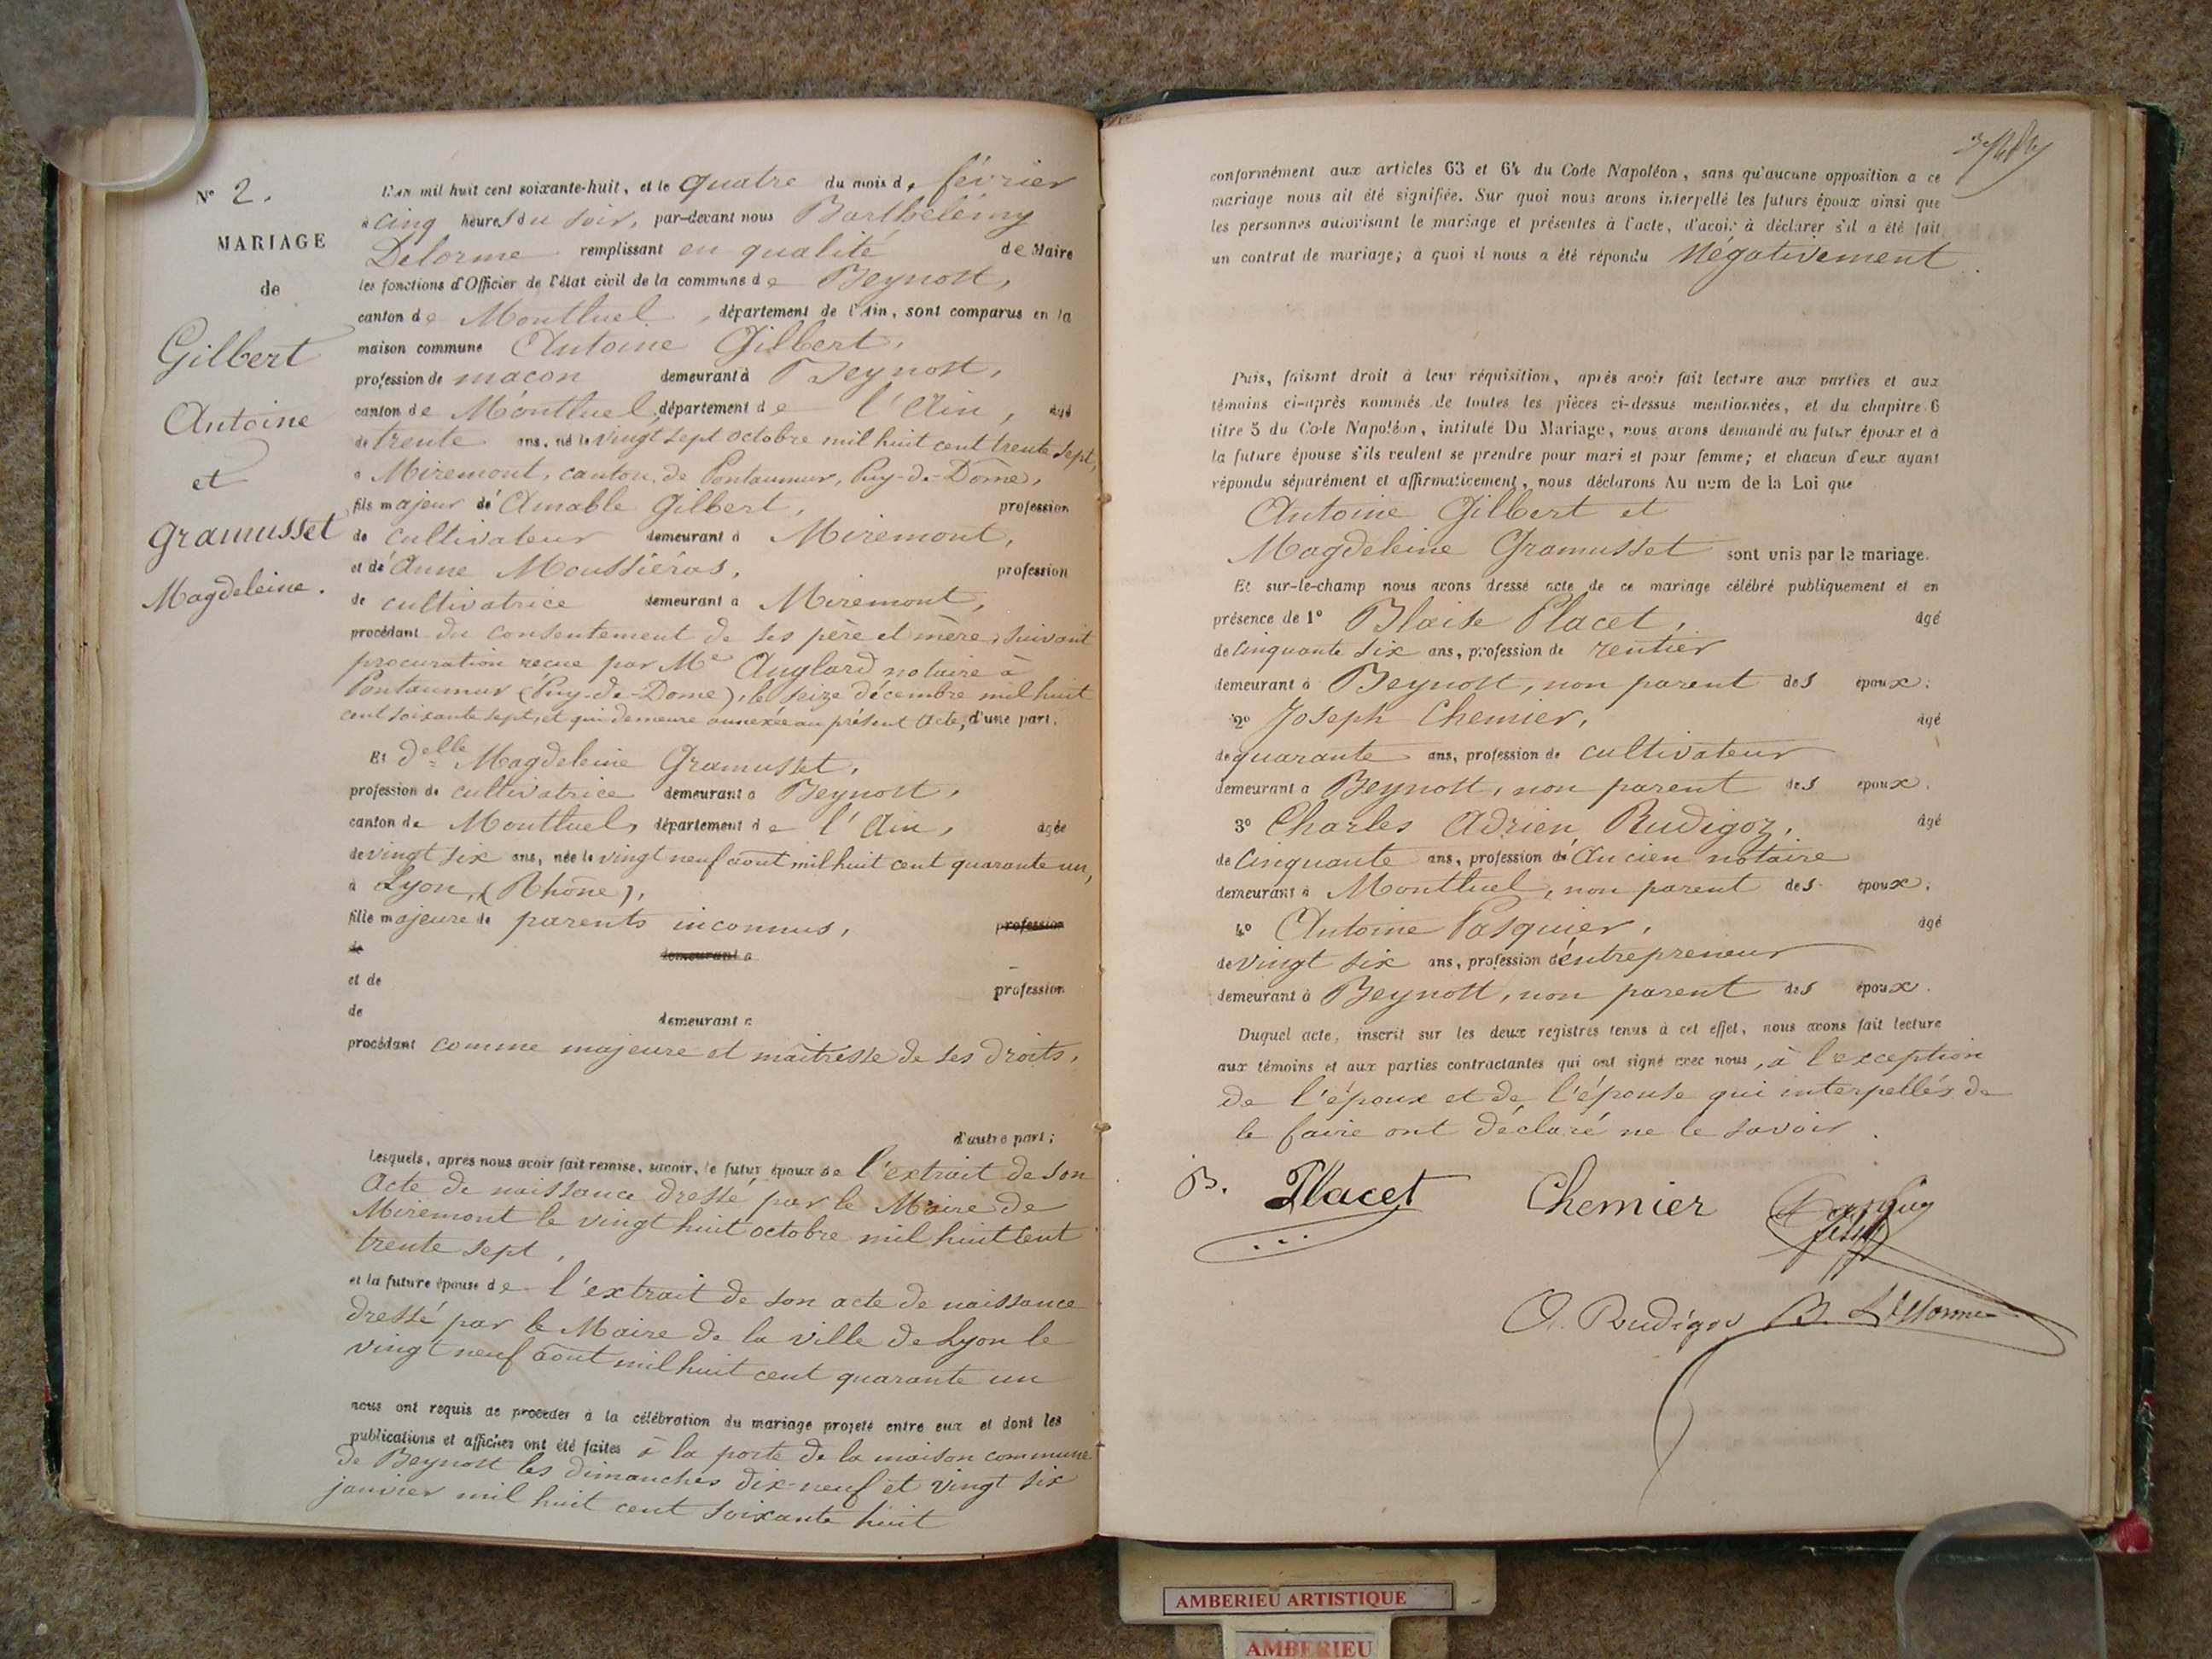 N° 2.
MARIAGE
de
Gilbert
Antoine
et
Gramusset
Magdeleine.
L'an mil huit cent soixante-huit, et le quatre du mois de février
à cinq heures du soir, par-devant nous Barthélémy
Delorme remplissant en qualité de Maire
les fonctions d'Officier de l'état civil de la commune de Beynost,
canton de Montluel, département de l'Ain, sont comparus en la
maison commune Antoine Gilbert,
profession de maçon demeurant à Beynost,
canton de Montluel, département de l'Ain, âgé
de trente ans, né le vingt sept octobre mil huit cent trente sept,
à Miremont, canton de Pontaumur, Puy-de-Dôme,
fils majeur de Amable Gilbert, profession
de cultivateur demeurant à Miremont,
et de Anne Moussiéras, profession
de cultivatrice demeurant à Miremont,
procédant du consentement de ses père et mère, suivant
procuration reçue par Me Anglard notaire à
Pontaumur (Puy-de-Dome), le seize décembre mil huit
cent soixante sept, et qui demeure annexée au présent acte, d'une part.
Et delle Magdeleine Gramusset,
profession de cultivatrice demeurant à Beynost,
canton de Montluel, département de l'Ain, âgée
de vingt six ans, née le vingt neuf août mil huit cent quarante un,
à Lyon, (Rhône),
fille majeure de parents inconnus, profession
de demeurant à
et de profession
de demeurant à
procédant comme majeure et maîtresse de ses droits,
d'autre part;
Lesquels, après nous avoir fait remise, savoir, le futur époux de l'extrait de son
acte de naissance dressé par le Maire de
Miremont le vingt huit octobre mil huit cent
trente sept,
et la future épouse de l'extrait de son acte de naissance
dressé par le Maire de la ville de Lyon le
vingt neuf août mil huit cent quarante un
nous ont requis de procéder à la célébration du mariage projeté entre eux et dont les
publications et affiches ont été faites à la porte de la maison commune
de Beynost les dimanches dix-neuf et vingt six
janvier mil huit cent soixante huit
conformément aux articles 63 et 64 du Code Napoléon, sans qu'aucune opposition a ce
mariage nous ait été signifiée. Sur quoi nous avons interpellé les futurs époux ainsi que
les personnes autorisant le mariage et présentes à l'acte, d'avoir à déclarer s'il a été fait
un contrat de mariage; à quoi il nous a été répondu Négativement.
Puis, faisant droit à leur réquisition, après avoir fait lecture aux parties et aux
témoins ci-après nommés de toutes les pièces ci-dessus mentionnées, et du chapitre 6
titre 5 du Code Napoléon, intitulé Du Mariage, nous avons demandé au futur époux et à
la future épouse s'ils veulent se prendre pour mari et pour femme; et chacun d'eux ayant
répondu séparément et affirmativement, nous déclarons Au nom de la Loi que
Antoine Gilbert et
Magdeleine Gramusset sont unis par le mariage.
Et sur-le-champ nous avons dressé acte de ce mariage célébré publiquement et en
présence de 1° Blaise Placet, âgé
de cinquante six ans, profession de rentier
demeurant à Beynost, non parent des époux;
2° Joseph Chemier, âgé
de quarante ans, profession de cultivateur
demeurant à Beynost, non parent des époux.
3° Charles Adrien Rudigoz, âgé
de cinquante ans, profession d'ancien notaire
demeurant à Montluel, non parent des époux;
4° Antoine Pasquier, âgé
de vingt six ans, profession d'entrepreneur
demeurant à Beynost, non parent des époux.
Duquel acte, inscrit sur les deux registres tenus à cet effet, nous avons fait lecture
aux témoins et aux parties contractantes qui ont signé avec nous, à l'exception
de l'époux et de l'épouse qui interpellés de
le faire ont déclaré ne le savoir.
B. Placet Chemier
A. Rudigoz B. Delorme
AMBERIEU ARTISTIQUE
AMBERIEU